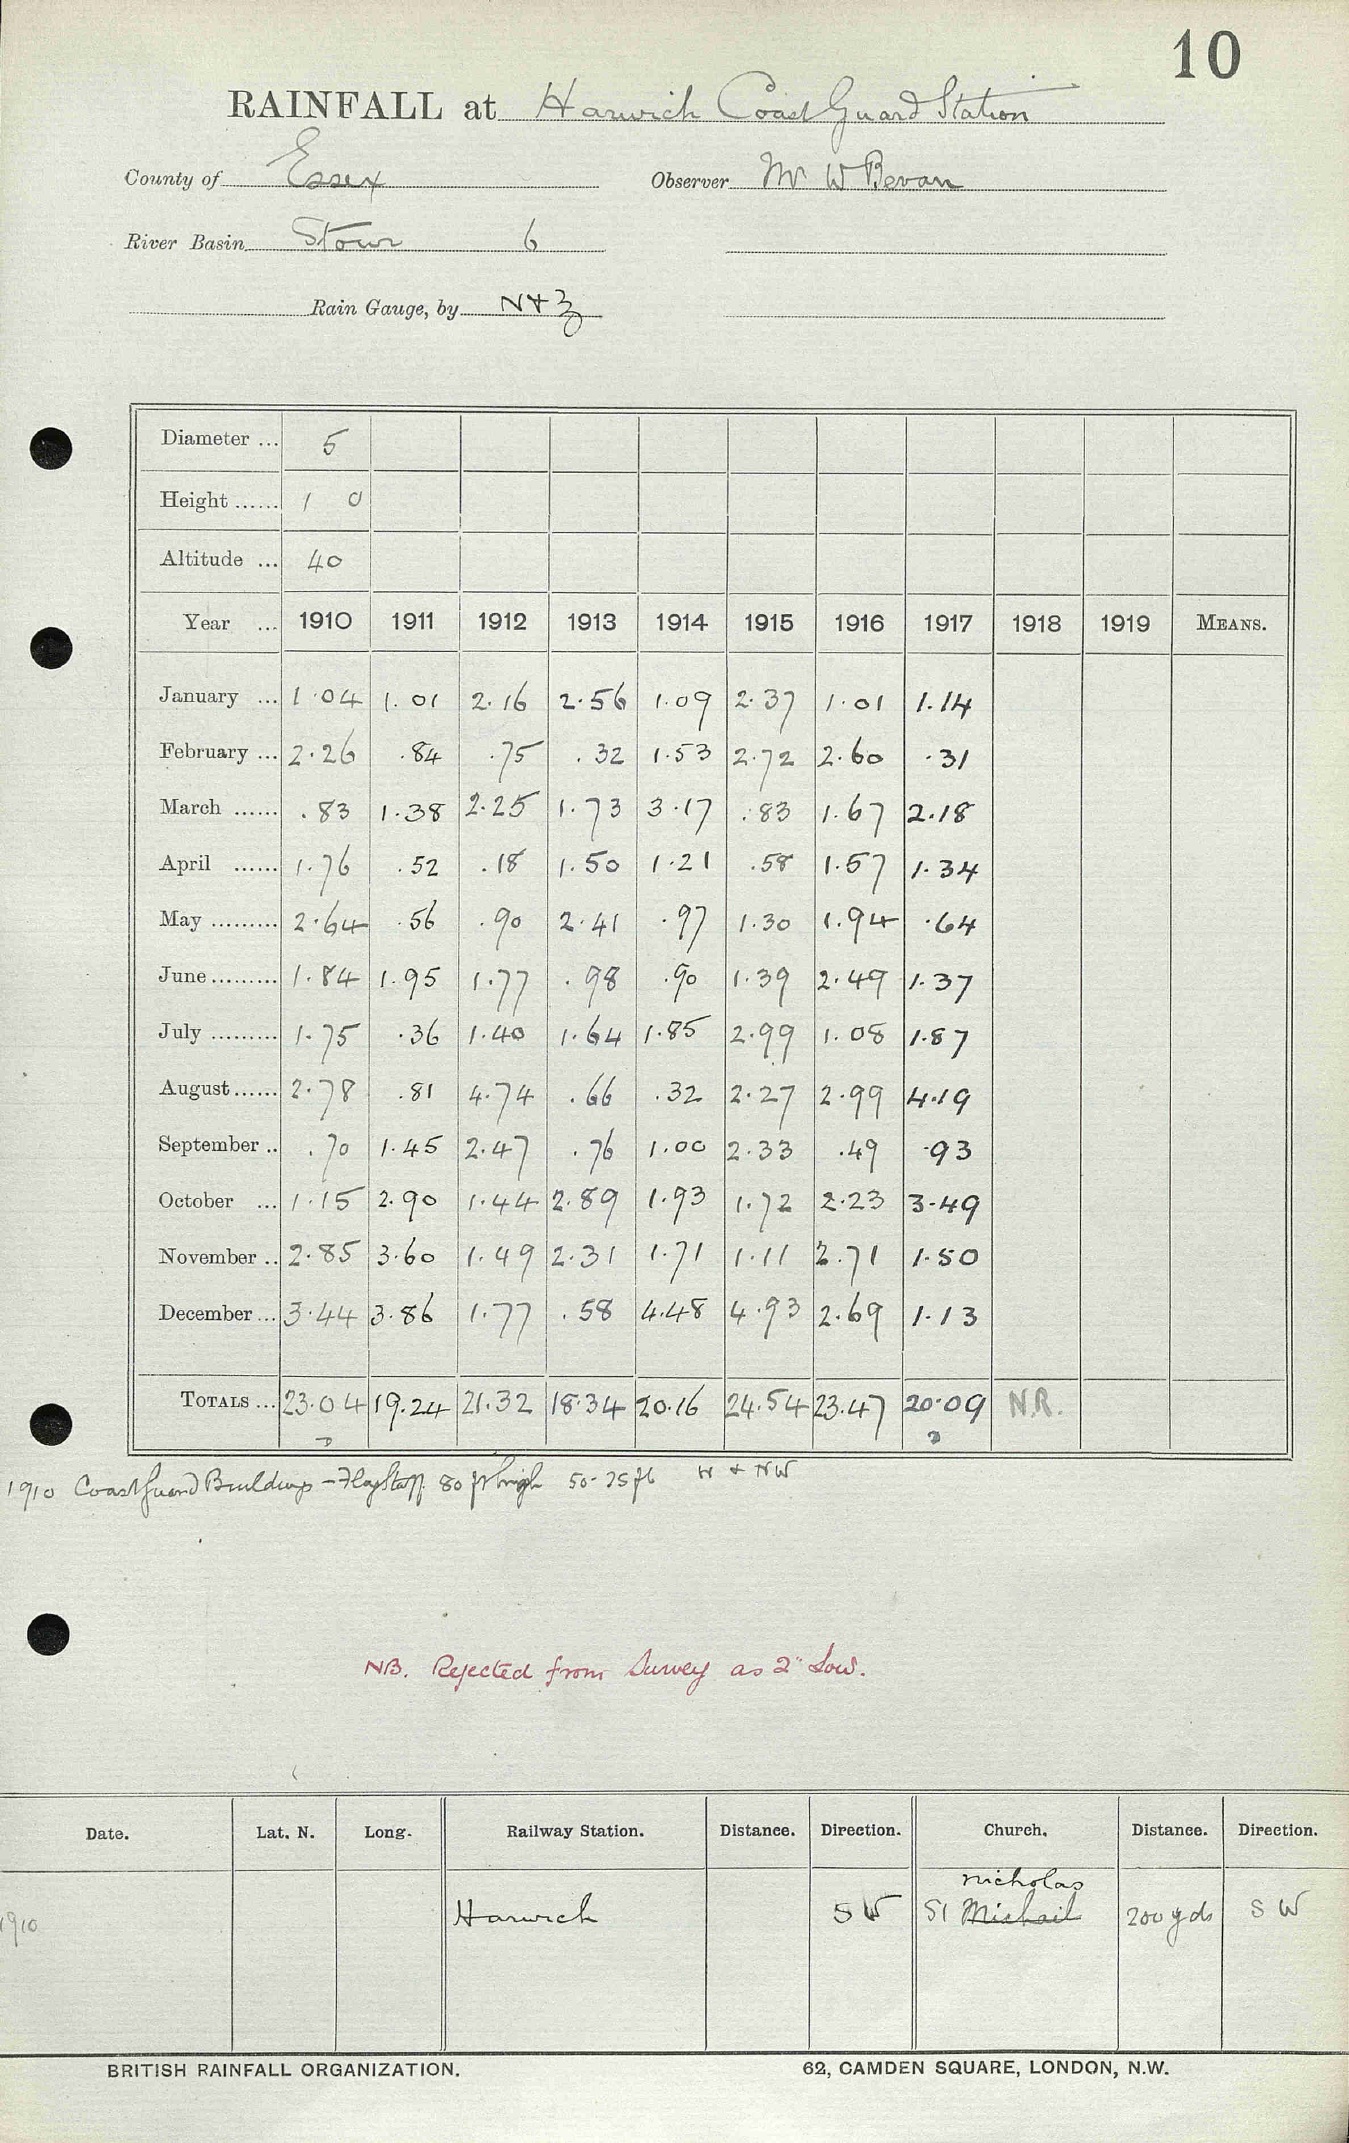 10
RAINFALL at Harwich Coast Guard Station
County of Essex Observer Mr W Bevan
River Basin Stour 6
Rain Gauge, by N & Z
Diameter ... 5
Height ...... 1 0
Altitude ... 40
Year ... 1910 1911 1912 1913 1914 1915 1916 1917 1918 1919 MEANS.
January ... 1.04 1.01 2.16 2.56 1.09 2.37 1.01 1.14
February ... 2.26 .84 .75 .32 1.53 2.72 2.60 .31
March ...... .83 1.38 2.25 1.73 3.17 .83 1.67 2.18
April ...... 1.76 .52 .18 1.50 1.21 .58 1.57 1.34
May ......... 2.64 .56 .90 2.41 .97 1.30 1.94 .64
June ......... 1.84 1.95 1.77 .98 .90 1.39 2.49 1.37
July ......... 1.75 .36 1.40 1.64 1.85 2.99 1.08 1.87
August ...... 2.78 .81 4.74 .66 .32 2.27 2.99 4.19
September .. .70 1.45 2.47 .76 1.00 2.33 .49 .93
October ... 1.15 2.90 1.44 2.89 1.93 1.72 2.23 3.49
November .. 2.85 3.60 1.49 2.31 1.71 1.11 2.71 1.50
December ... 3.44 3.86 1.77 .58 4.48 4.93 2.69 1.13
TOTALS ... 23.04 19.24 21.32 18.34 20.16 24.54 23.47 20.09 N.R.
1910 Coastguard Buildings - Flagstaff 80 ft high 50-75 ft W & NW
NB. Rejected from Survey as 2" Low.
Date. Lat. N. Long. Railway Station. Distance. Direction. Church. Distance. Direction.
nicholas
1910 Harwich SW St Michail 200 yds SW
BRITISH RAINFALL ORGANIZATION. 62, CAMDEN SQUARE, LONDON, N.W.